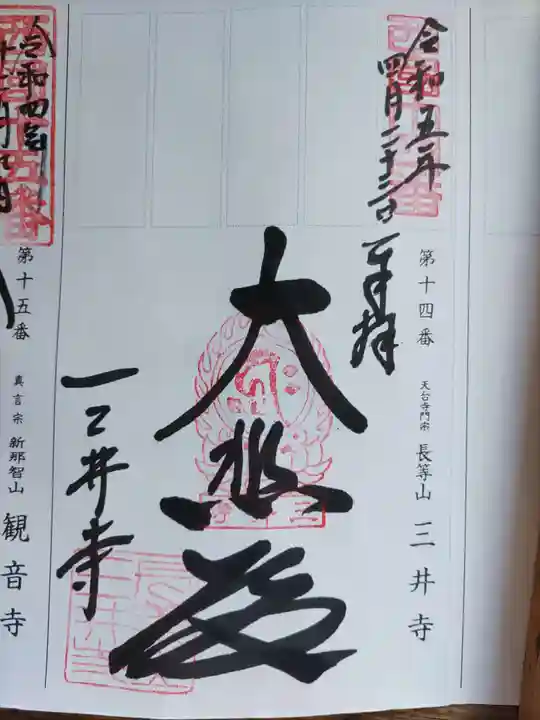 第十四番
天台寺門宗
長等山
三井寺
令和五年
四月二十三日
奉拝
大悲殿
三井寺
第十五番
真言宗
新那智山
観音寺
令和四年